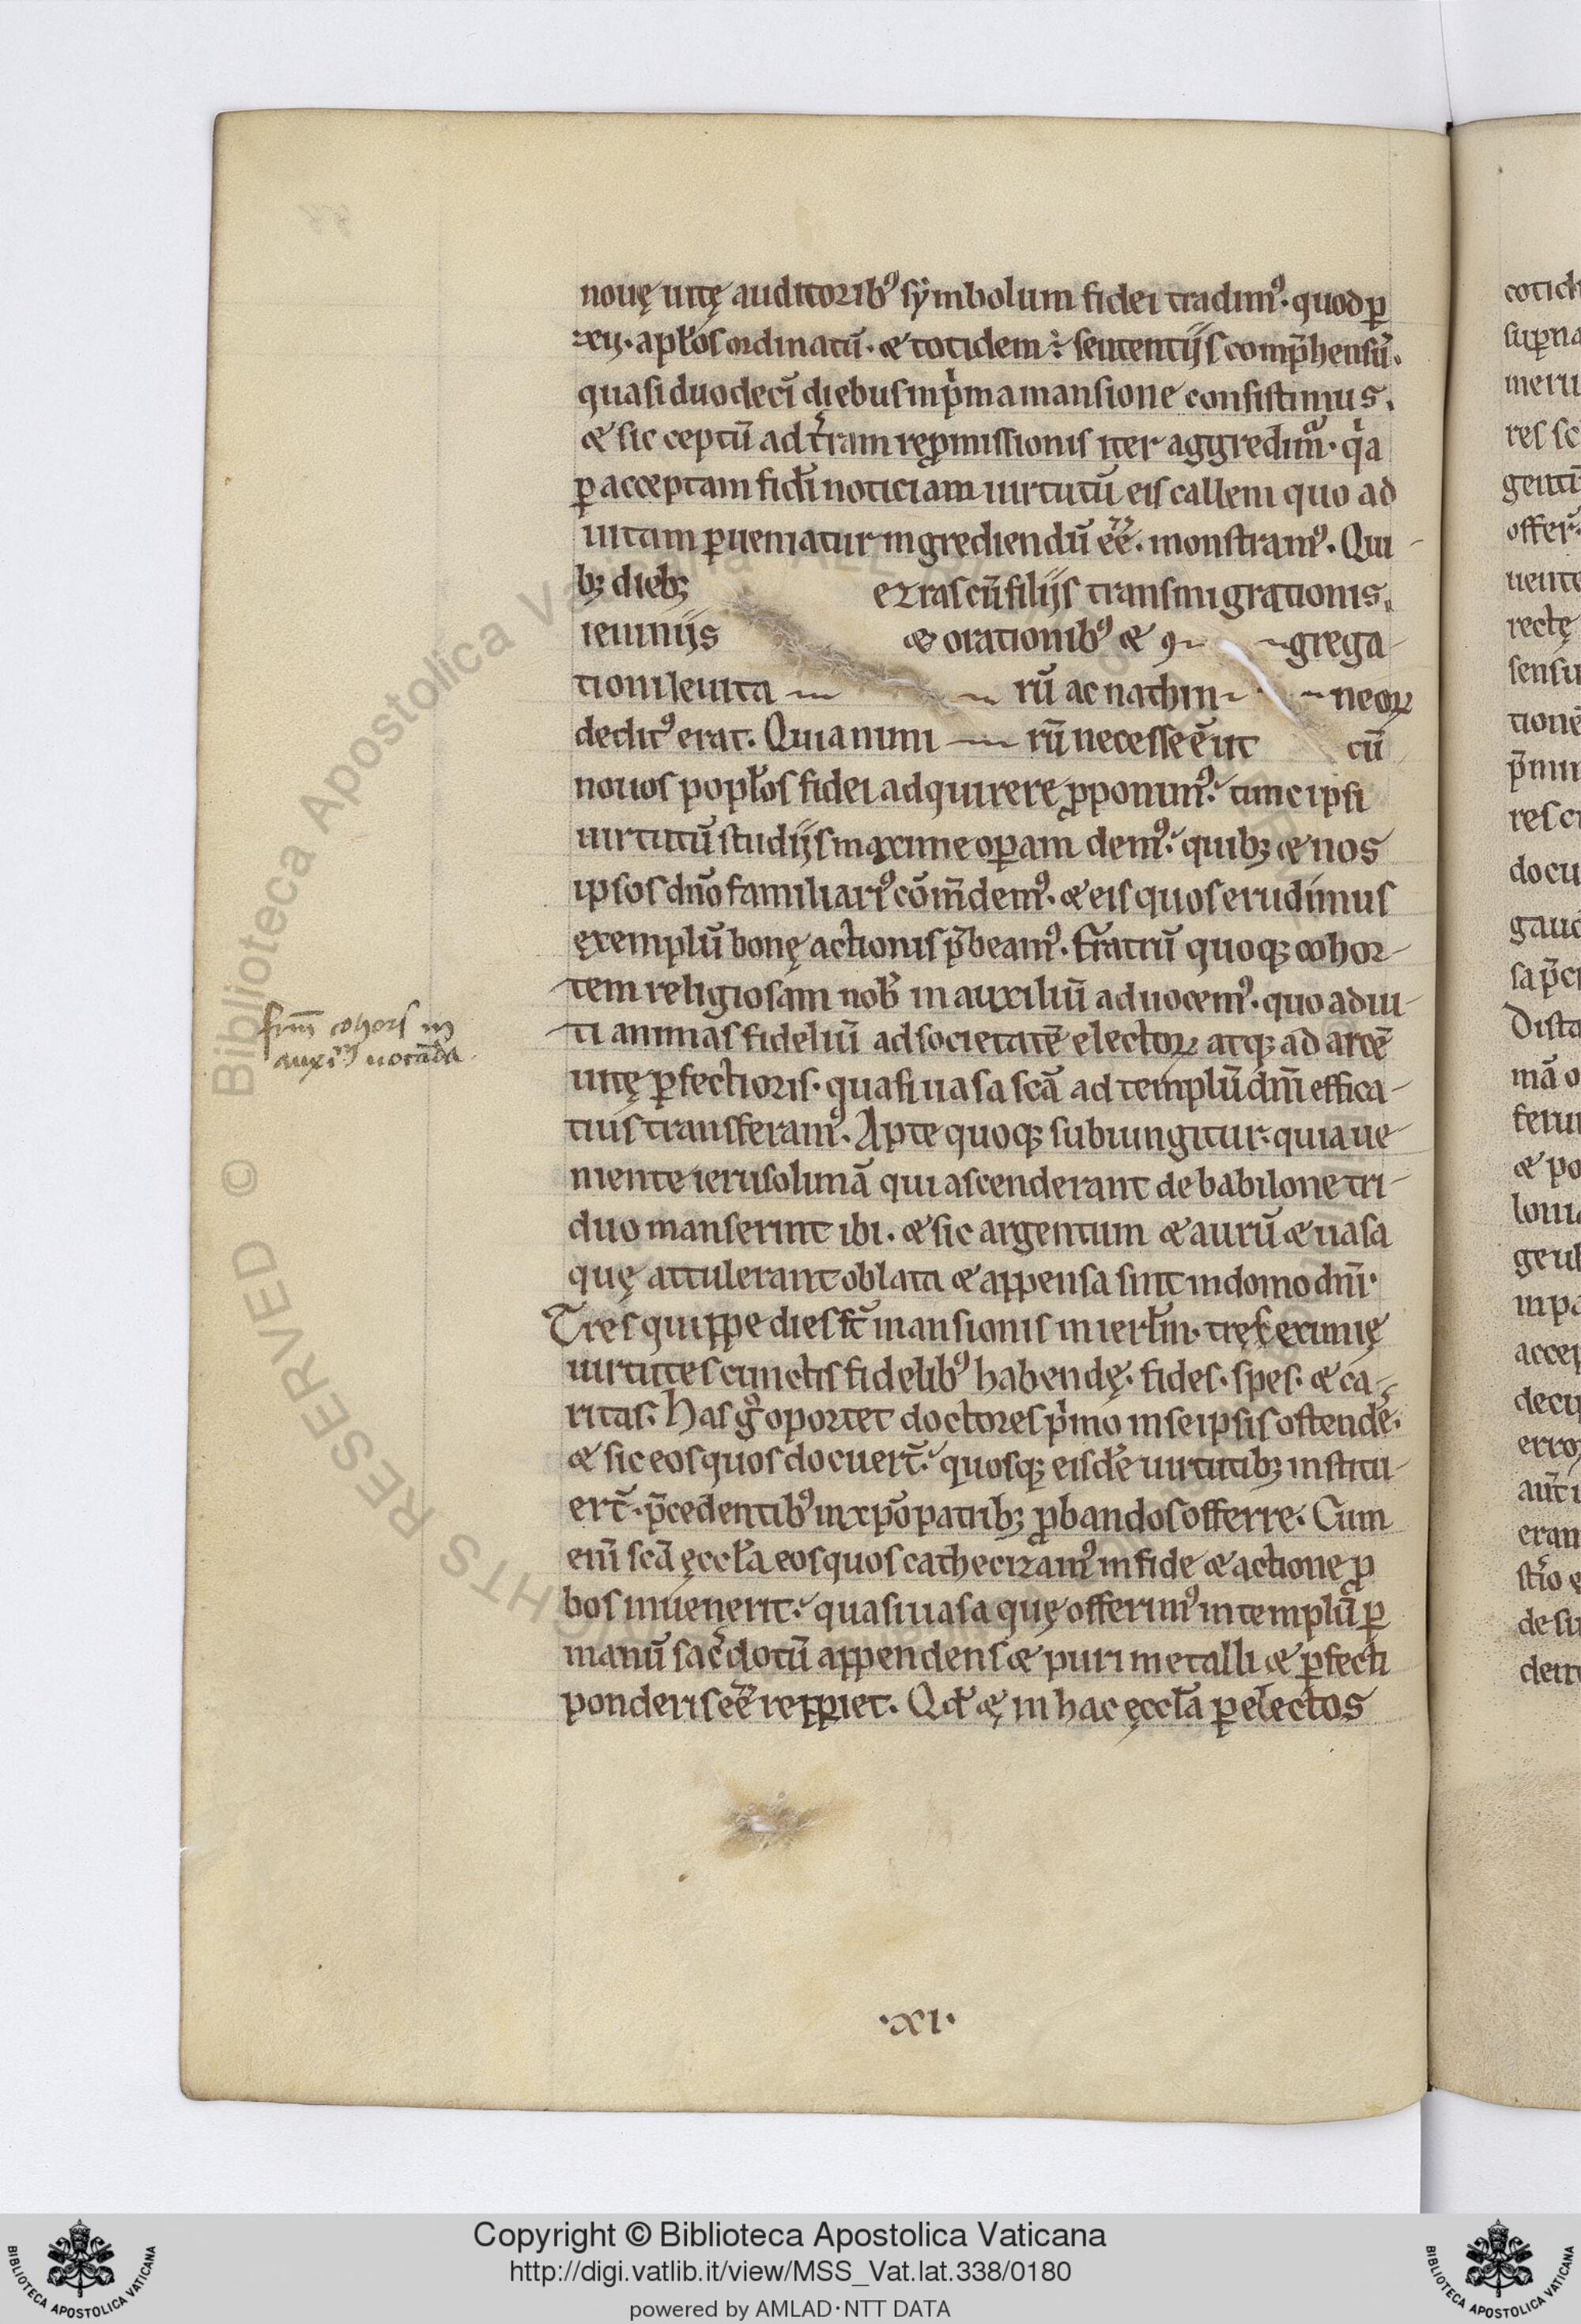 nouę uitę auditorib᷒ sẏmbolum fidei tradim᷒. quod ꝑ
xij. apłos ordinatū. & totidem sententijs compͤhensū.
quasi duodecī diebus in pͥma mansione consistimus.
& sic ceptū ad tͬram reꝓmissionis iter aggredimͬ. qͥa
ꝑ acceptam fidei noticiam uirtutū eis callem quo ad
uitam ꝑueniatur ingrediendū eē. monstram᷒. Qui-
bꝫ diebꝫ ezras cū filijs transmigrationis.
ieiunijs & orationib᷒ & ꝯ grega-
tioni leuita rū ac nathinneoꝝ
dedit᷒ erat. Quia nimirū necesse ē ut cū
nouos popłos fidei adquirere ꝓponim᷒. tunc ipsi
uirtutū studijs maxime oꝑam dem᷒. quibꝫ & nos
ipsos dn̄o familiari᷒ cōm̄dem᷒. & eis quos erudimus
exemplū bonę actionis p̄beam᷒. Fratrū quoqꝫ cohor-
tem religiosam nob̄ in auxiliū aduocem᷒. quo adiu-
ti animas fideliū ad societatē electoꝝ atqꝫ ad arcē
uitę ꝑfectioris. quasi uasa scā ad templū dn̄i effica-
tius transferam᷒. Apte quoqꝫ subiungitur. quia ue-
niente ierusolimā qui ascenderant de babilone tri-
duo manserint ibi. & sic argentum & aurū & uasa
quę attulerant oblata & appensa sint in domo dn̄i.
Tres quippe dies st̄ mansionis in ierłm. tres eximię
uirtutes cunctis fidelib᷒ habendę. fides. spes. & ca-
ritas. Has gͦ oportet doctores pͥmo in se ipsis ostendeͬ.
& sic eos quos docuert̄. quosqꝫ eisdē uirtutibꝫ institu-
ert̄. p̄cedentib᷒ in xp̄o patribꝫ ꝓbandos offerre. Cum
eni̅ scā ęccła eos quos cathecizam᷒ in fide & actione ꝓ
bos inuenerit. quasi uasa quę offerim᷒ in templū ꝑ
manū sac̄dotū appendens & puri metalli & ꝑfecti
ponderis eē repꝑiet. Qđ & in hac ęccła ꝑ electos
frūm cohors in
auxiᷓ uocāda.
.xi.
cotich
suꝑna
meru
res sc
genti
offer
uente
rectę
sensu
tione
p̄mi
res ci
docu
gaud
sap̄ci
Dista
mā o
feru
& po
loni
geul
in pa
accep
decip
erroꝛ
aut̄ i
eran
de su
detr
Copyright © Biblioteca Apostolica Vaticana
http://digi.vatlib.it/view/MSS_Vat.lat.338/0180
powered by AMLAD·NTT DATA
BIBLIOTECA APOSTOLICA VATICANA
BIBLIOTECA APOSTOLICA VATICANA